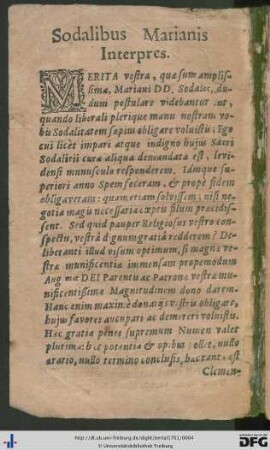 Sodalibus Marianis
Interpres.
MERITA vestra, quæ sum amplis-
simæ, Mariani DD. Sodales, du-
dum postulare videbantur ut,
quando liberali plerique manu nostram vo-
bis Sodalitatem sæpius obligare voluistis; Ego
cui licèt impari atque indigno hujus Sacri
Sodalitii cura aliqua demandata est, levi-
densi munusculo responderem. Idmque su-
periori anno Spem feceram, & prope fidem
obligaveram: quam etiam solvissem; nisi ne-
gotia magis necessaria cæptis filum præcidis-
sent. Sed quid pauper Religiosus vestro con-
spectu, vestrâ dignum gratiâ redderem? De-
liberanti illud visum optimum, si magnæ ve-
stræ munificentiæ immensam propemodum
Augustæ DEI Parentis ac Patronæ vestræ mu-
nificentissimæ Magnitudinem dono darem.
Hanc enim maximè donariis vestris obligare,
hujus favores aucupari ac demereri voluistis.
Hæc gratiâ penes supremum Numen valet
plurimùm: hæc potentiâ & opibus pollet, nullo
ærario, nullo termino conclusis, hactantæ est
Clemen-
http://dl.ub.uni-freiburg.de/diglit/bertal1701/0004
© Universitätsbibliothek Freiburg
gefördert durch die
DFG